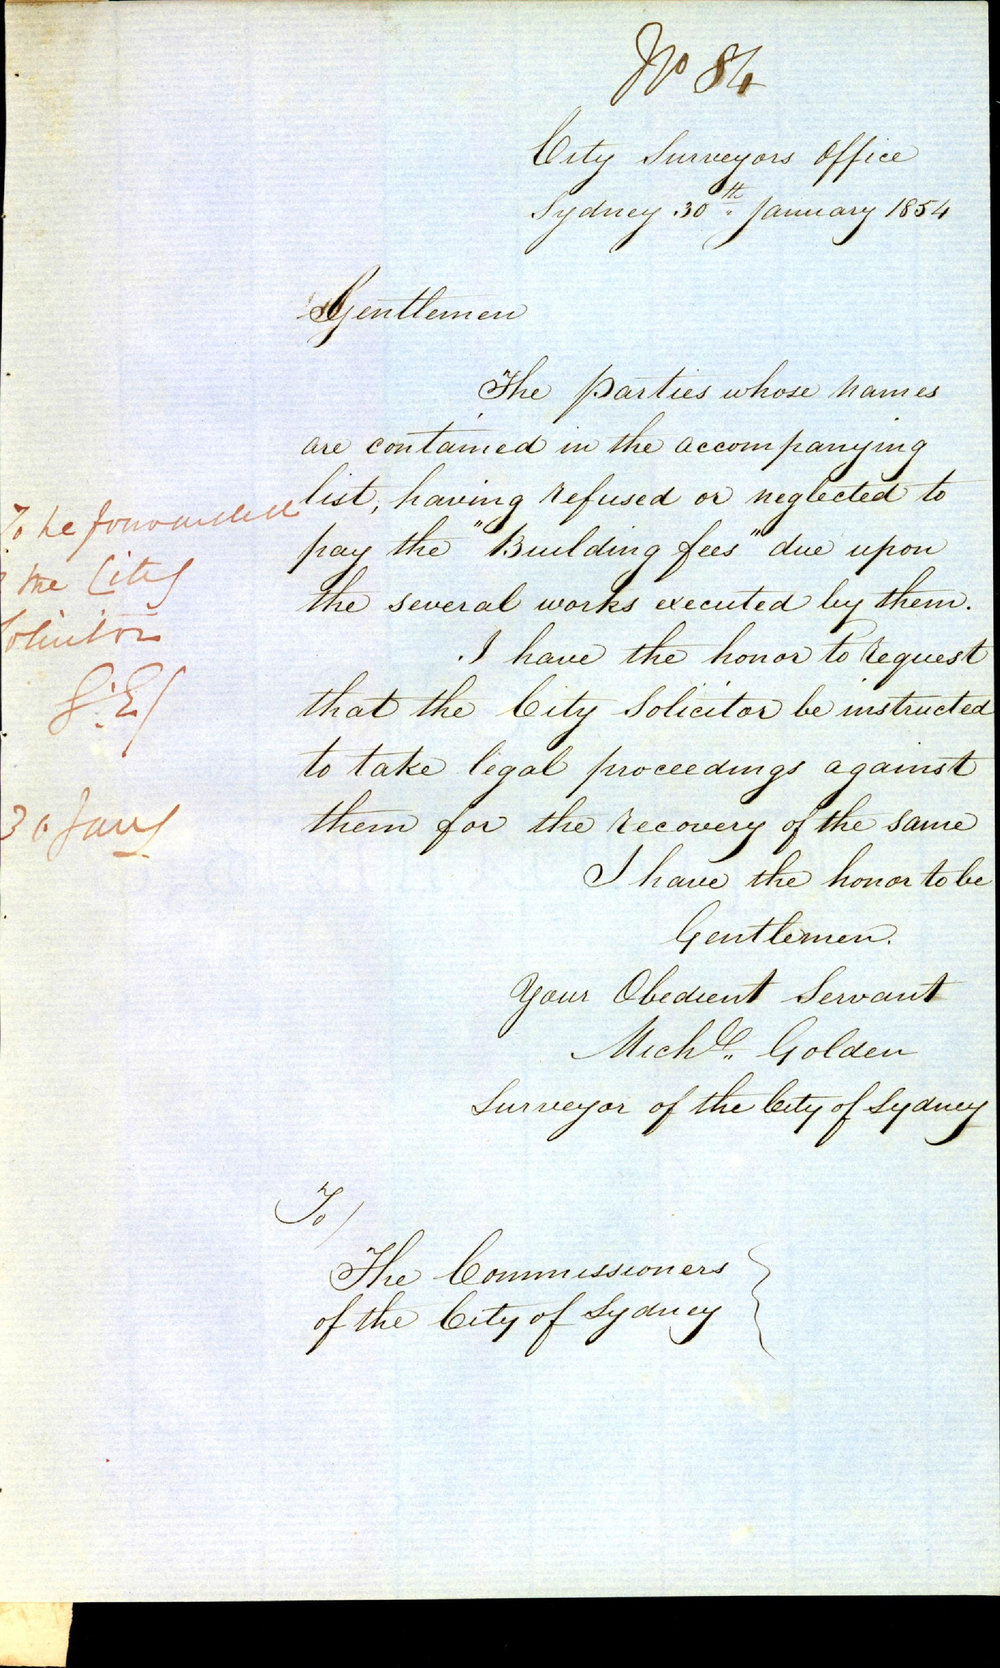 No 84
City Surveyors Office
Sydney 30th January 1854
Gentlemen
The parties whose names
are contained in the accompanying
list, having refused or neglected to
pay the "Building fees" due upon
the several works executed by them.
I have the honor to request
that the City Solicitor be instructed
to take legal proceedings against
them for the recovery of the same
I have the honor to be
Gentlemen.
Your Obedient Servant
Michl. Golden
Surveyor of the City of Sydney
To/
The Commissioners
of the City of Sydney
To be forwarded
the City
Solicitor
G.E/
30 Jany